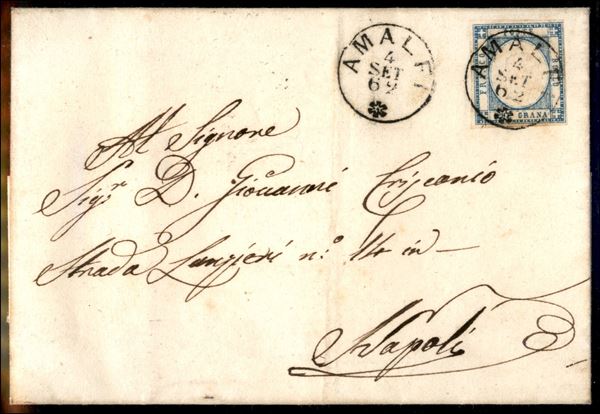 AMALFI
4
SET
62
AMALFI
4
SET
62
FRANCO
BOLLO
GRANA
Al Signore
Sigr. D. Giovanni Criscanio
Strada Lanzieri n.o 14 in
Napoli